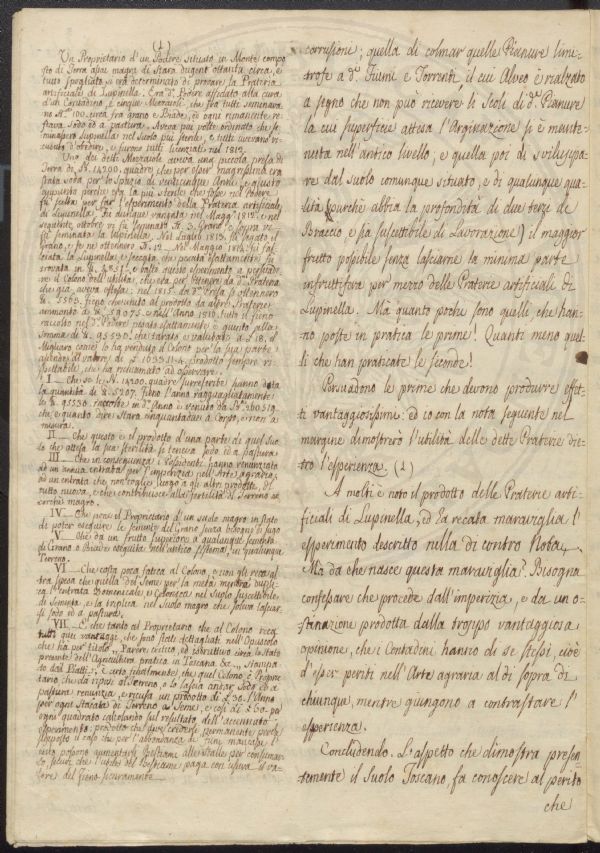 (1)
Un Proprietario d'un Podere Situato in Monte compo
sto di Terra assai magra di Stara dugent'ottanta circa, e
tutto spogliato, si era determinato di provar la Prateria
artificiale di Lupinella. Era d.º Podere affidato alla cura
d'un Contadino, e cinque Mezzaioli, che fra tutti seminava
no St. 100. circa fra Grano e Biade, ed ogni rimanente re
stava Sodo ed a pastura. Aveva più volte ordinato che se
minassero Lupinella nel Suolo più sterile, e tutti
d'obbedire, e furono tutti licenziati nel 1812.
Uno dei detti Mezzaiuoli aveva una piccola presa di
Terra di B. 14200. quadre, che per esser magrissima era
stata Soda per lo Spazio di Anni, e questa
quantità perchè era la più sterile che fosse nel Podere
fu scelta per far l'esperimento della Prateria artificiale
di Lupinella. Fu dunque vangata nel Magg.º 1812. e nel
seguente ottobre vi fu seminato St. 3. Grano e sopra vi
fu seminata la Lupinella. Nel Luglio 1813. fu segato il
Grano, e se ne ottennero St. 12. Nel Maggio 1814. fu fal
ciata la Lupinella e seccata, che pesata esattamente fu
trovata in
re il Colono dell'utilità, che era per ottenere da d.ª Prateria
che 1815. da d.ª Presa si ottennero
5563. fieno che unito al prodotto da altre Praterie
aumentò di 59075. e nell'Anno 1816. tutto il fieno
raccolto nel d.º Podere pesato esattamente è giunto alla
Somma di 95530. che tarato e valutato a £ 18. il
Migliaro come si è venduto il Colono per la sua parte
ascende al valore di prodotto sempre ri
spettabile, che ha richiamato ad osservare.
I. Che se le B. 14200. quadre furreferibe hanno dato
la quantità di 5207. fieno l'anno ragguagliatamente:
le 95530. raccolte in d.º Anno è venuto da B. 260519
che è quanto dire Stara cinquantadue a Corpo, e non a
misura.
II. Che questo è il prodotto d'una parte di quel Suo
lo che attesa la sua sterilità si teneva sodo ed a pastura
III. Che in conseguenza i Possidenti hanno renunziato
ad un annua entrata per l'imperizia nell'Arte agraria;
ad un entrata che non toglie luogo a gli altri prodotti, di
tutto nuova, e che contribuisce alla fertilità di Terreno an
corchè magro.
IV. Che pone il Proprietario d'un suolo magro in stato
di poter eseguire le sementi del Grano senza bisogno di sugo
V. Che dà un frutto superiore a qualunque sementa
di Grano o Biade eseguita nell'antico Sistema, in qualunque
Terreno.
VI. Che costa poca fatica al Colono, e non già recasi al
tra spesa che quella del Seme per la metà, mentre dupli
ca l'entrata Domenicale, e Colonica nel Suolo suscettibile
di Sementa, e la triplica nel Suolo magro che soleva lasciar
si sodo ed a pastura.
VII. E che tanto al Proprietario che al Colono reca
tutti quei vantaggi, che sono stati dettagliati nell'Opuscolo
che ha per titolo = Parere critico, ed istruttivo circa lo stato
presente dell'Agricoltura pratica in Toscana &c. = Stampato
dal Piatti; È certo finalmente che quel Colono, o Proprie
tario, che fa riposar il Terreno, o lo lascia andar sodo, ed a
pastura renunzia, e ricusa un prodotto di £ 30. l'Anno
per ogni Staiata di Terreno a Seme, e così di £ 60. per
ogni quadrato calcolando sul resultato dell'accennato
esperimento: prodotto che deve credersi permanente perchè
supposto il caso che per l'abbondanza dei fieni mancasse l'
esito possono aumentarsi i Bestiami alle stalle per consumar
lo, sicuri che l'utile del bestiame paga con usura il va
lore del fieno sicuramente.
corrosione; quella di colmar quelle Pianure limi=
trofe a d.ⁱ Fiumi e Torrenti, il cui Alveo è realzato
a segno che non può ricevere le Scole di d.ᵉ Pianure
la cui superficie attesa l'Arginazione si è mante=
nuta nell'antico livello; e quella poi di sviluppa=
re dal suolo comunque situato, e di qualunque qua=
lità (purchè abbia la profondità di due terzi di
Braccio e sia suscettibile di Lavorazione) il maggior
frutto possibile senza lasciarne la minima parte
infruttifera per mezzo delle Praterie artificiali di
Lupinella. Ma quanto poche sono quelle che han=
no poste in pratica le prime! Quanti meno quel=
li che han praticate le seconde!
Persuadono le prime che devono produrre effet=
ti vantaggiosissimi: ed io con la nota seguente nel
margine dimostrerò l'utilità delle dette Praterie die=
tro l'esperienza. (1)
A molti è noto il prodotto delle Praterie arti=
ficiali di Lupinella, ed ha recata maraviglia l'
esperimento descritto nella di contro Nota.
Ma da che nasce questa maraviglia? Bisogna
confessare che procede dall'imperizia, e da un o=
stinazione prodotta dalla troppo vantaggiosa
opinione, che i Contadini hanno di se stessi, cioè
d'esser periti nell'Arte agraria al di sopra di
chiunque, mentre giungono a contrastare l'
esperienza.
Concludendo. L'aspetto che dimostra presen=
temente il Suolo Toscano, fa conoscere al perito
che